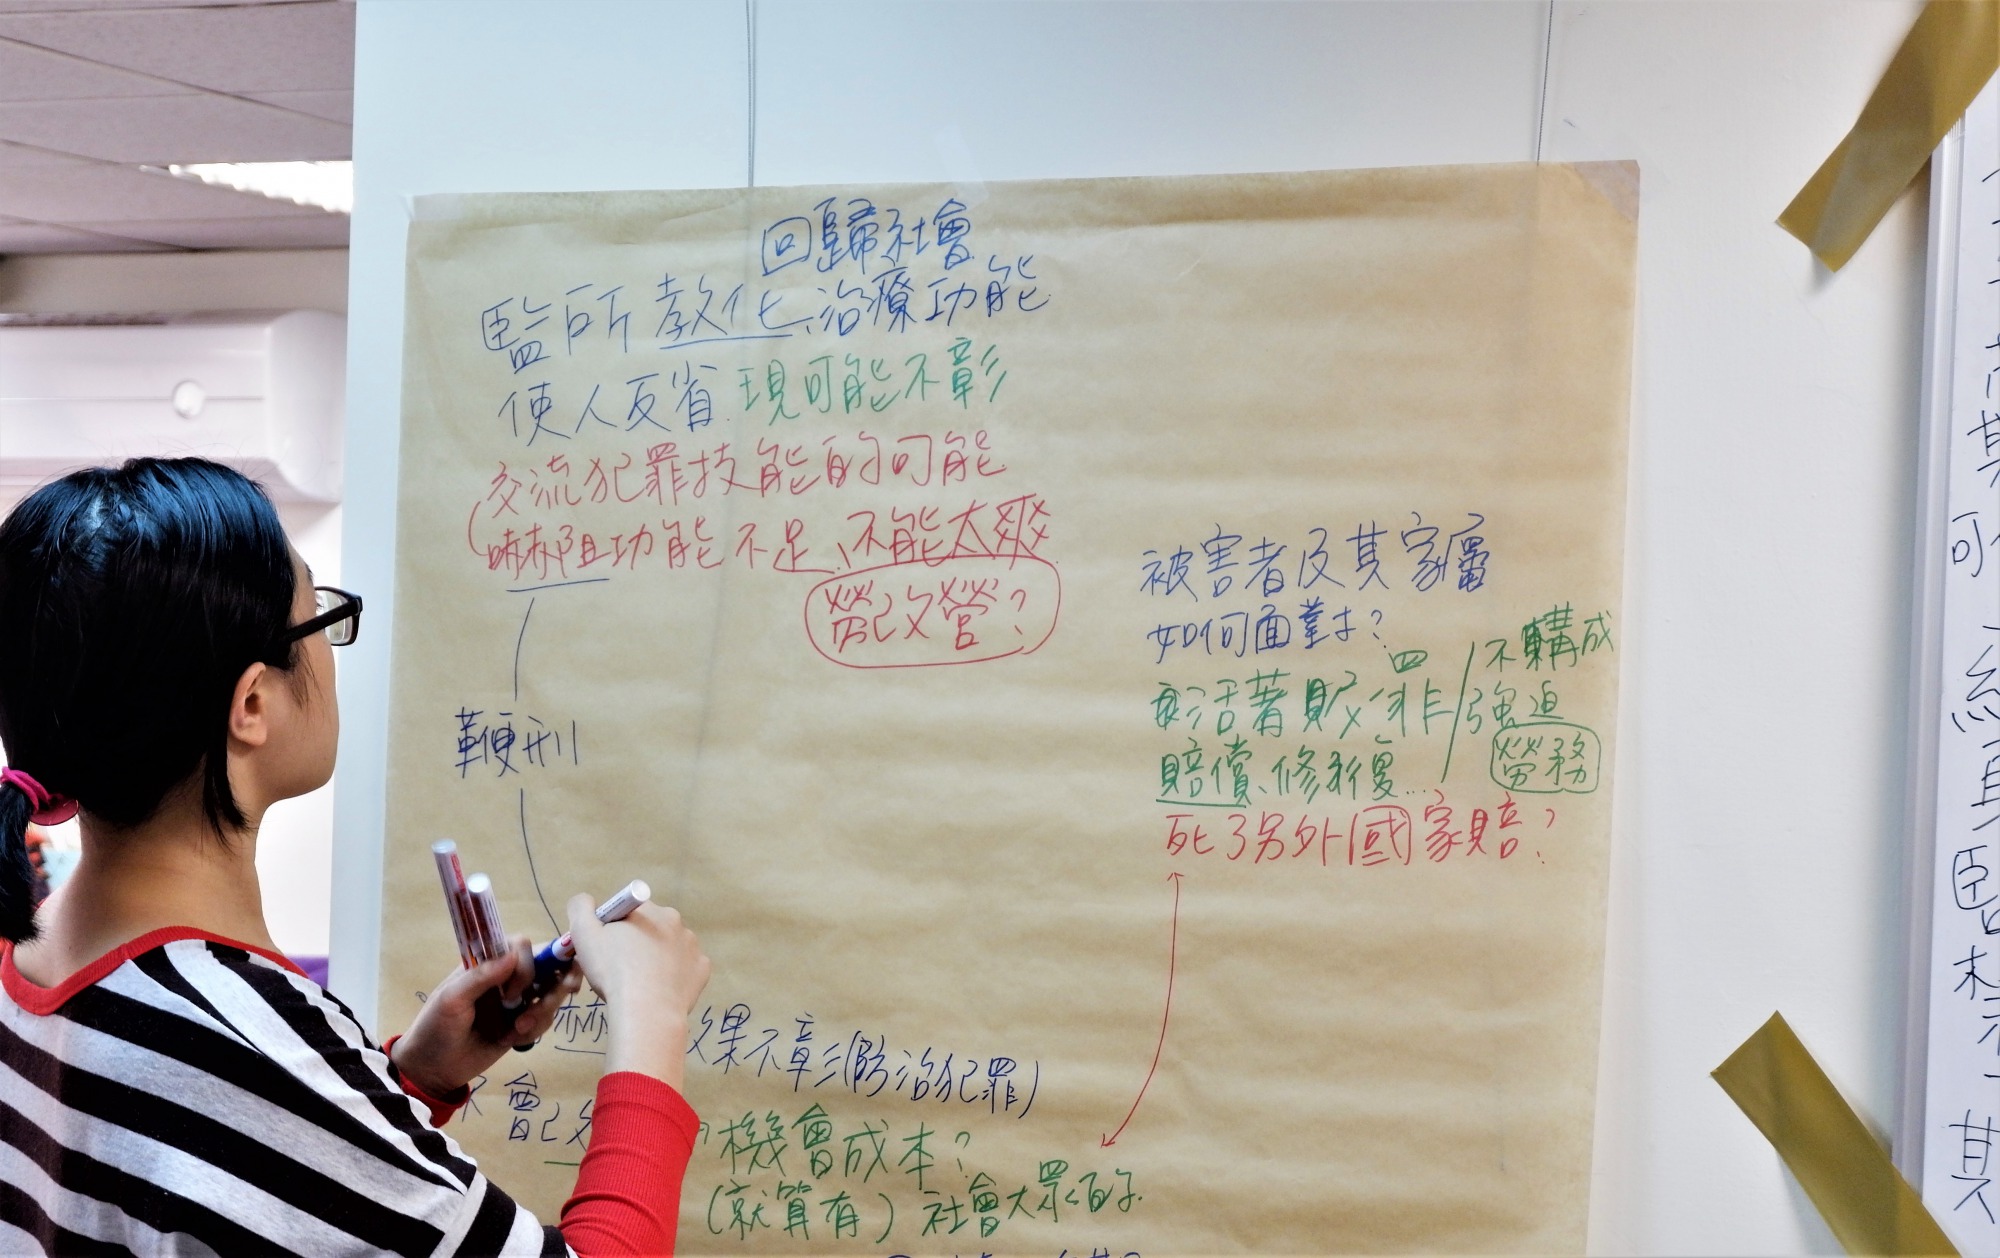 回歸社會
監所教化、治療功能
使人反省 現可能不彰
交流犯罪技能的可能
嚇阻功能不足、不能太爽
勞改營?
鞭刑
被害者及其家屬
如何面對?
活著贖罪/不構成
強迫
賠償、修復... 勞務
死了另外國家賠?
果不彰(防治犯罪)
會改
機會成本?
(就算有)社會大眾的